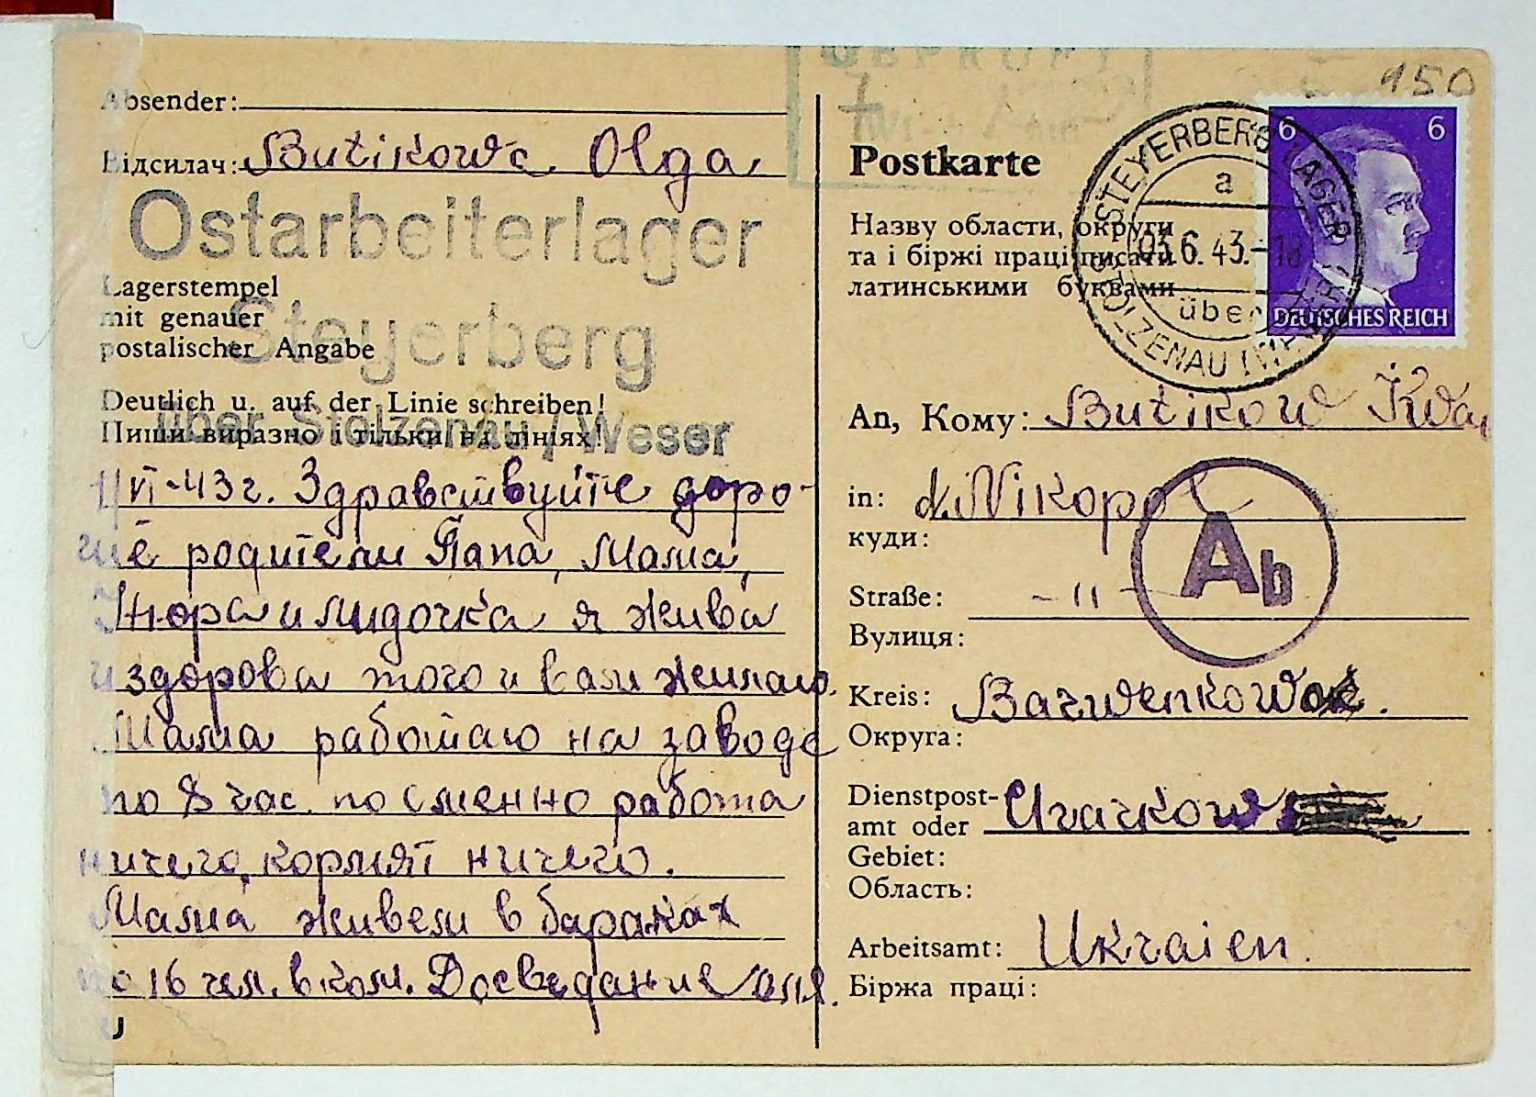 Absender:
Відсилач: Butikowa Olga
Ostarbeiterlager
Lagerstempel
mit genauer
Steyerberg
postalischer Angabe
Deutlich u. auf der Linie schreiben!
über Stolzenau/Weser
Пиши виразно і тільки на лініях!
VI-43г. Здравствуйте доро-
гие родители Папа, Мама,
Нюра и Лидочка я жива
и здорова того и вам желаю.
Мама работаю на заводе
по 8 час. по сменно работа
ничего, кормят ничего.
Мама живем в бараках
по 16 чел. в ком. Досведание
U
GEPRÜFT
950
Postkarte
Назву области, округи
та і біржі праці писати
латинськими буквами
STEYERBERG LAGER
a
6.43.-18
über
STOLZENAU (WESER)
6 6
DEUTSCHES REICH
An, Кому: Butikow Iwan
in: d. Nikopol
куди:
Ab
Straße: -"-
Вулиця:
Kreis: Barwenkowo
Округа:
Dienstpost-
amt oder Charkow
Gebiet:
Область:
Arbeitsamt: Ukraien.
Біржа праці: